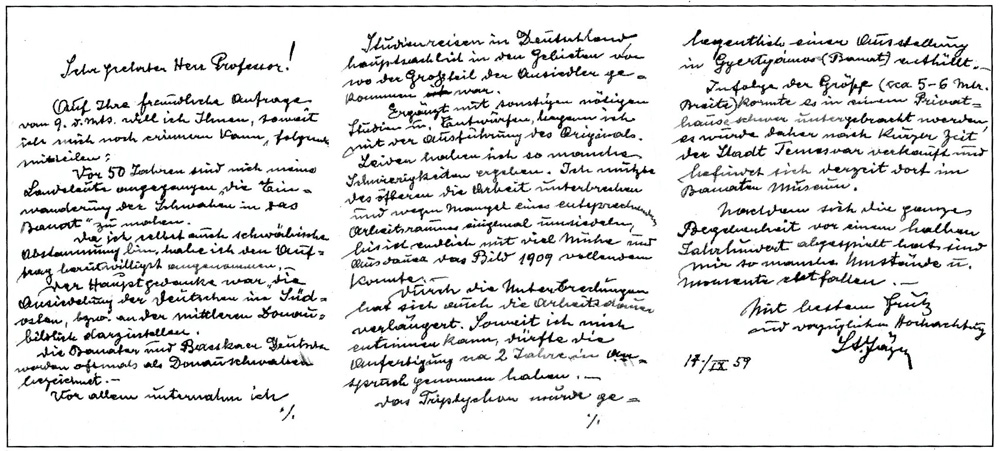 Sehr geehrter Herr Professor!
Auf Ihre freundliche Anfrage
vom 9. d. Mts. will ich Ihnen, soweit
ich mich noch erinnern kann, folgendes
mitteilen:
Vor 50 Jahren sind mich meine
Landsleute angegangen „die Ein-
wanderung der Schwaben in das
Banat" zu malen.
Da ich selbst auch schwäbischer
Abstammung bin, habe ich den Auf-
trag bereitwilligst angenommen.
Der Hauptgedanke war, die
Ansiedelung der Deutschen im Süd-
osten, bzw. an der mittleren Donau-
bildlich darzustellen.
Die Banater und Batschkaer Deutschen
werden oftmals als Donauschwaben
bezeichnet.—
Vor allem unternahm ich
./.
Studienreisen in Deutschland
hauptsächlich in den Gebieten von
wo der Großteil der Ansiedler ge-
kommen war.
Ergänzt mit sonstigen nötigen
Studien u. Entwürfen, begann ich
mit der Ausführung des Originals.
Leider haben sich so manche
Schwierigkeiten ergeben. Ich mußte
des öfteren die Arbeit unterbrechen
und wegen Mangel eines entsprechenden
Arbeitsraumes einigemal umsiedeln,
bis ich endlich mit viel Mühe und
Ausdauer das Bild 1909 vollenden
konnte.—
Durch die Unterbrechungen
hat sich auch die Arbeitsdauer
verlängert. Soweit ich mich
entsinnen kann, dürfte die
Anfertigung ca 2 Jahre in An-
spruch genommen haben.—
Das Triptychon wurde ge-
./.
legentlich einer Ausstellung
in Gyertyámos (Banat) enthüllt.—
Infolge der Größe (ca 5-6 Mtr.
Breite) konnte es in einem Privat-
hause schwer untergebracht werden,
es wurde daher nach kurzer Zeit
der Stadt Temesvar verkauft und
befindet sich derzeit dort im
Banater Museum.
Nachdem sich die ganze
Begebenheit vor einem halben
Jahrhundert abgespielt hat, sind
mir so manche Umstände u.
Momente entfallen.—
Mit bestem Gruß
und vorzüglicher Hochachtung
St. Jäger
17./IX 59